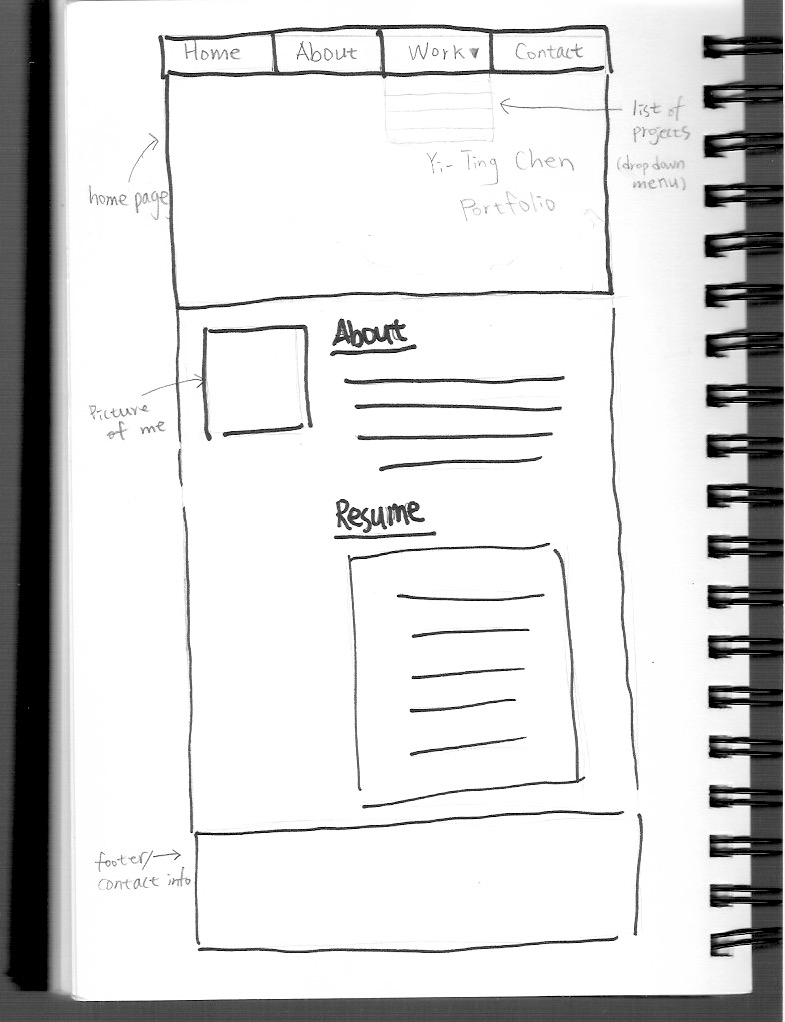 Home About Work▾ Contact
list of
projects
(drop down
menu)
Yi-Ting Chen
Portfolio
home page
About
Picture
of me
Resume
footer/
contact info